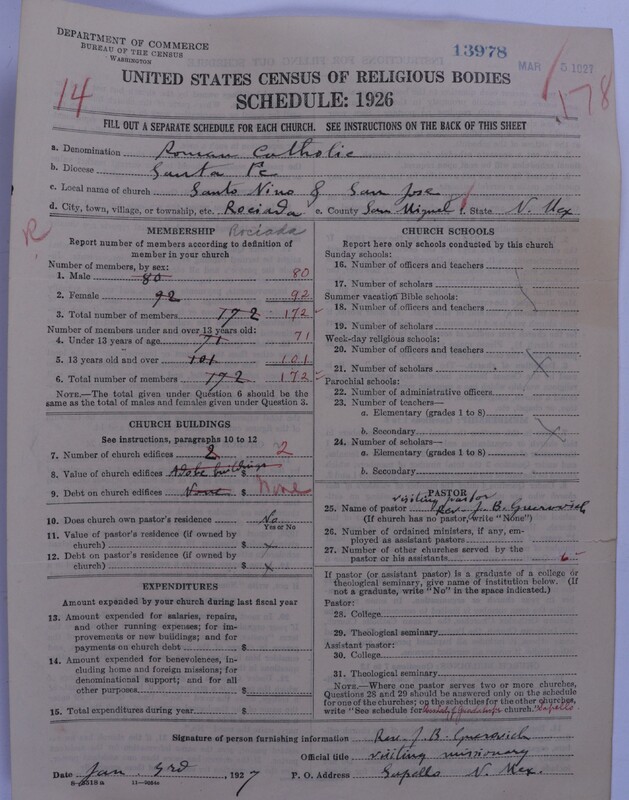 DEPARTMENT OF COMMERCE
BUREAU OF THE CENSUS
WASHINGTON
13978
MAR 5 1927
14
178
UNITED STATES CENSUS OF RELIGIOUS BODIES
SCHEDULE: 1926
FILL OUT A SEPARATE SCHEDULE FOR EACH CHURCH. SEE INSTRUCTIONS ON THE BACK OF THIS SHEET
a. Denomination Roman Catholic
b. Diocese Santa Fe
c. Local name of church Santo Nino & San Jose
d. City, town, village, or township, etc. Rociada e. County San Miguel f. State N. Mex
R
MEMBERSHIP Rociada
Report number of members according to definition of member in your church
Number of members, by sex:
1. Male 80 80
2. Female 92 92
3. Total number of members 172 172
Number of members under and over 13 years old:
4. Under 13 years of age 71 71
5. 13 years old and over 101 101
6. Total number of members 172 172
NOTE.—The total given under Question 6 should be
same as the total of males and females given under Question 3.
CHURCH BUILDINGS
See instructions, paragraphs 10 to 12
7. Number of church edifices 2 2
8. Value of church edifices Adobe buildings $
9. Debt on church edifices None $ None
10. Does church own pastor's residence No
Yes or No
11. Value of pastor's residence (if owned by
church) $ x
12. Debt on pastor's residence (if owned by
church) $ x
EXPENDITURES
Amount expended by your church during last fiscal year
13. Amount expended for salaries, repairs,
and other running expenses; for im-
provements or new buildings; and for
payments on church debt $
14. Amount expended for benevolences, in-
cluding home and foreign missions; for
denominational support; and for all
other purposes $
15. Total expenditures during year $
CHURCH SCHOOLS
Report here only schools conducted by this church
Sunday schools:
16. Number of officers and teachers
17. Number of scholars
Summer vacation Bible schools:
18. Number of officers and teachers
19. Number of scholars
Week-day religious schools:
20. Number of officers and teachers
21. Number of scholars x
Parochial schools:
22. Number of administrative officers
23. Number of teachers—
a. Elementary (grades 1 to 8)
b. Secondary x
24. Number of scholars—
a. Elementary (grades 1 to 8)
b. Secondary
PASTOR
visiting pastor
25. Name of pastor Rev. J. B. Guerovich
(If church has no pastor, write "None")
26. Number of ordained ministers, if any, em-
ployed as assistant pastors
27. Number of other churches served by the
pastor or his assistants 6
If pastor (or assistant pastor) is a graduate of a college or
theological seminary, give name of institution below. (If
not a graduate, write "No" in the space indicated.)
Pastor:
28. College
29. Theological seminary
Assistant pastor:
30. College
31. Theological seminary
NOTE.—Where one pastor serves two or more churches,
Questions 28 and 29 should be answered only on the schedule
for one of the churches; on the schedules for the other churches,
write "See schedule for Guadalupe church." Sapello
Signature of person furnishing information Rev. J. B. Guerovich
Official title visiting missionary
Date Jan. 3rd, 1927 P. O. Address Sapello N. Mex.